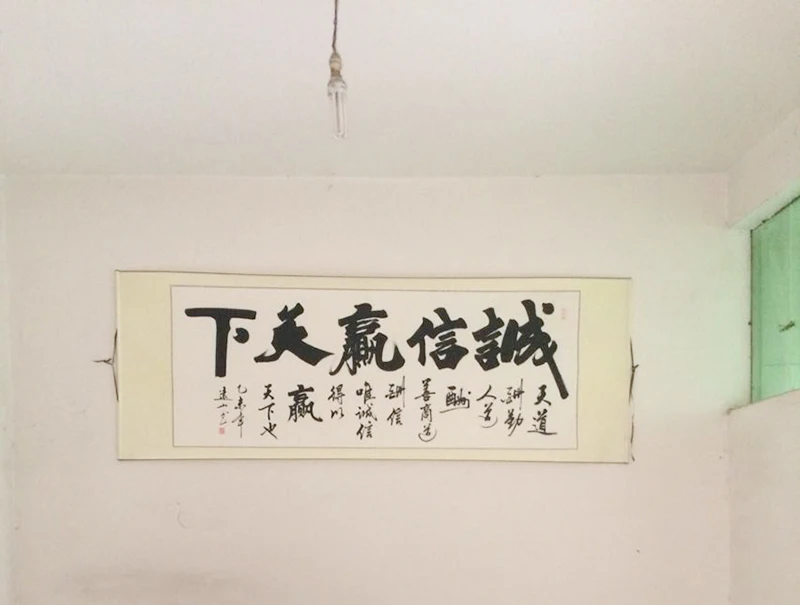 誠信贏天下
天道
酬勤
人道
酬
善商道
酬信
唯誠信
得以
贏
天下也
乙未年